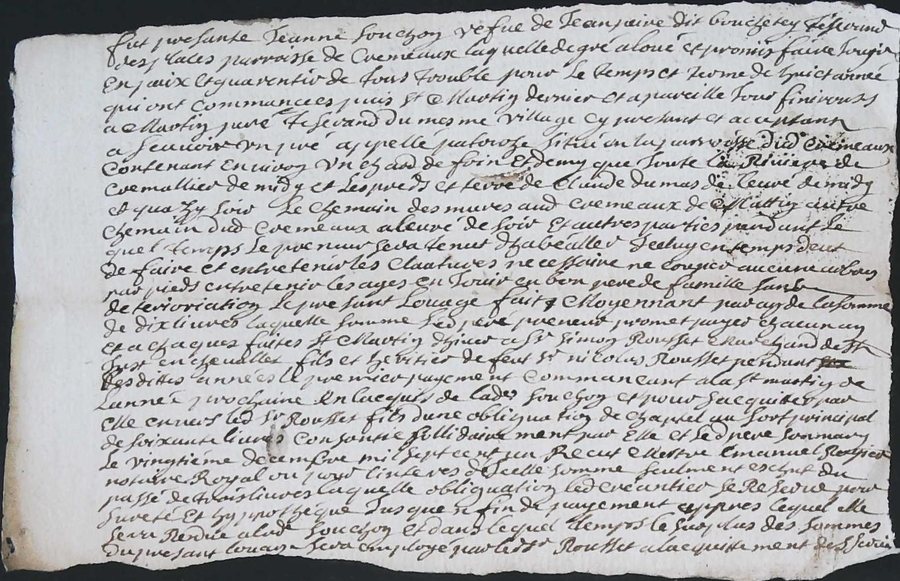 fut presante Jeanne Souchon vefve de Jean paire dit bouchetey tisserand
des plates parroisse de Cremeaux laquelle de gré a loué et promis faire jouyr
En paix et quarentir de tous trouble pour Le temps et terme de huict année
qui ont Commancees puis St Martin dernier et a pareille Jour finiront
a Martin paré tisserand du mesme village cy presant et acceptant
a scavoir un pré appellé patoroze Situé en la parroisse dud Cremeaux
Contenant Environ Un chard de foin Et demy que Joute La Riviere de
Cremallier de midy et Les preds et terre de Claude dumas de levé de midy
et qua soir Le chemain des mures aud Cremeaux de Mattin autre
Chemain dud Cremeaux a levé de soir Et autres parties pandant Le
quel temps Le preneur sera tenut d'habealler Icelluy en temps deut
de faire et entretenir les Claatures necessaire ne Couper aucune arbres
par pieds entretenir les ages en Jouir en bon pere de famille sans
deterioriation Le presant Louage fait Moyennant par an de la somme
de dix livres laquelle somme Led paré preneur promet payer chacun an
et a chaques faites St Martin dhiver a Sr Simon Rousset Marchand de St
Just en chevallet fils et heritier de feut Sr nicolas Rousset pendant
Lesdites années Le premier payement Commancant a la St martin de
Lannée prochaine En lacquis de lade Souchon et pour sacquiter par
elle envers led Sr Rousset fils dune obliquation de chaptal au sort principal
de soixante livres Consantie sollidairement par Elle et led pere son mary
Le vingtiéme decembre mil sept cent un Recut Maitre Emanuel
notaire Royal ou pour linteres dicelle somme seulment eschut du
passé de trois livres laquelle obliquation led creantier se Reserve pour
sureté Et hyppotheque Jusque a fin de payement appres lequel elle
sera Rendue a lade Souchon et dans lequel temps le surplus des sommes
du presant louage sera employé par led Sr Rousset a lacquittement des